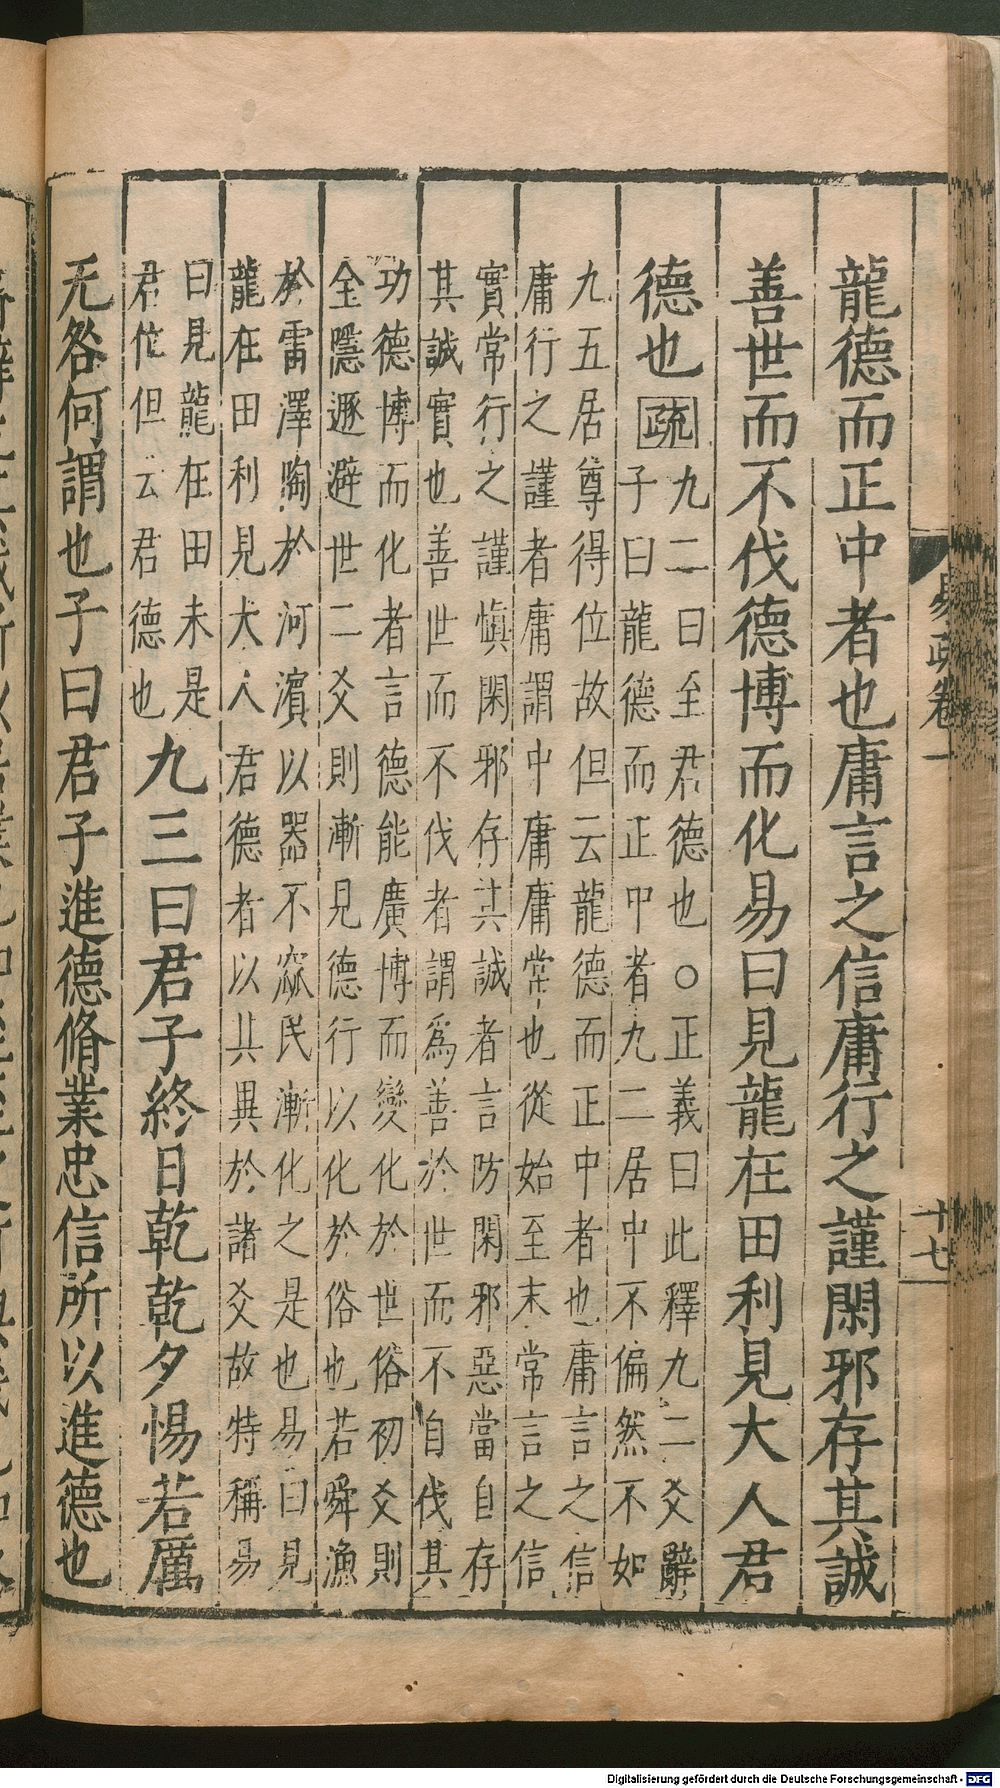 龍德而正中者也庸言之信庸行之謹閑邪存其誠
善世而不伐德博而化易曰見龍在田利見大人君
德也疏九二曰至君德也○正義曰此釋九二爻辭
子曰龍德而正中者九二居中不偏然不如
九五居尊得位故但云龍德而正中者也庸言之信
庸行之謹者庸謂中庸庸常也從始至末常言之信
實常行之謹慎閑邪存其誠者言防閑邪惡當自存
其誠實也善世而不伐者謂爲善於世而不自伐其
功德博而化者言德能廣博而變化於世俗初爻則
全隱遯避世二爻則漸見德行以化於俗也若舜漁
於雷澤陶於河濱以器不窳民漸化之是也易曰見
龍在田利見大人君德者以其異於諸爻故特稱易
曰見龍在田未是
君位但云君德也
九三曰君子終日乾乾夕惕若厲
无咎何謂也子曰君子進德脩業忠信所以進德也
易疏卷一
十七
Digitalisierung gefördert durch die Deutsche Forschungsgemeinschaft - DFG